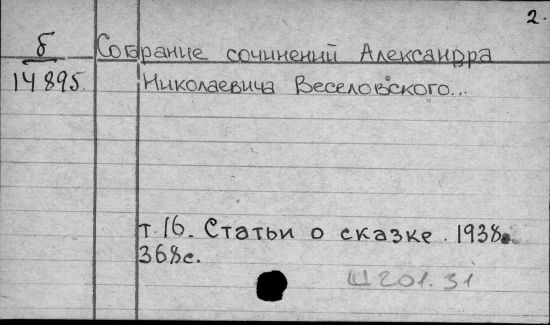 2.
б Собрание сочинений Александра
14895 Николаевича Веселовского...
т. 16. Статьи о сказке. 1938.
368с.
Ш201.31